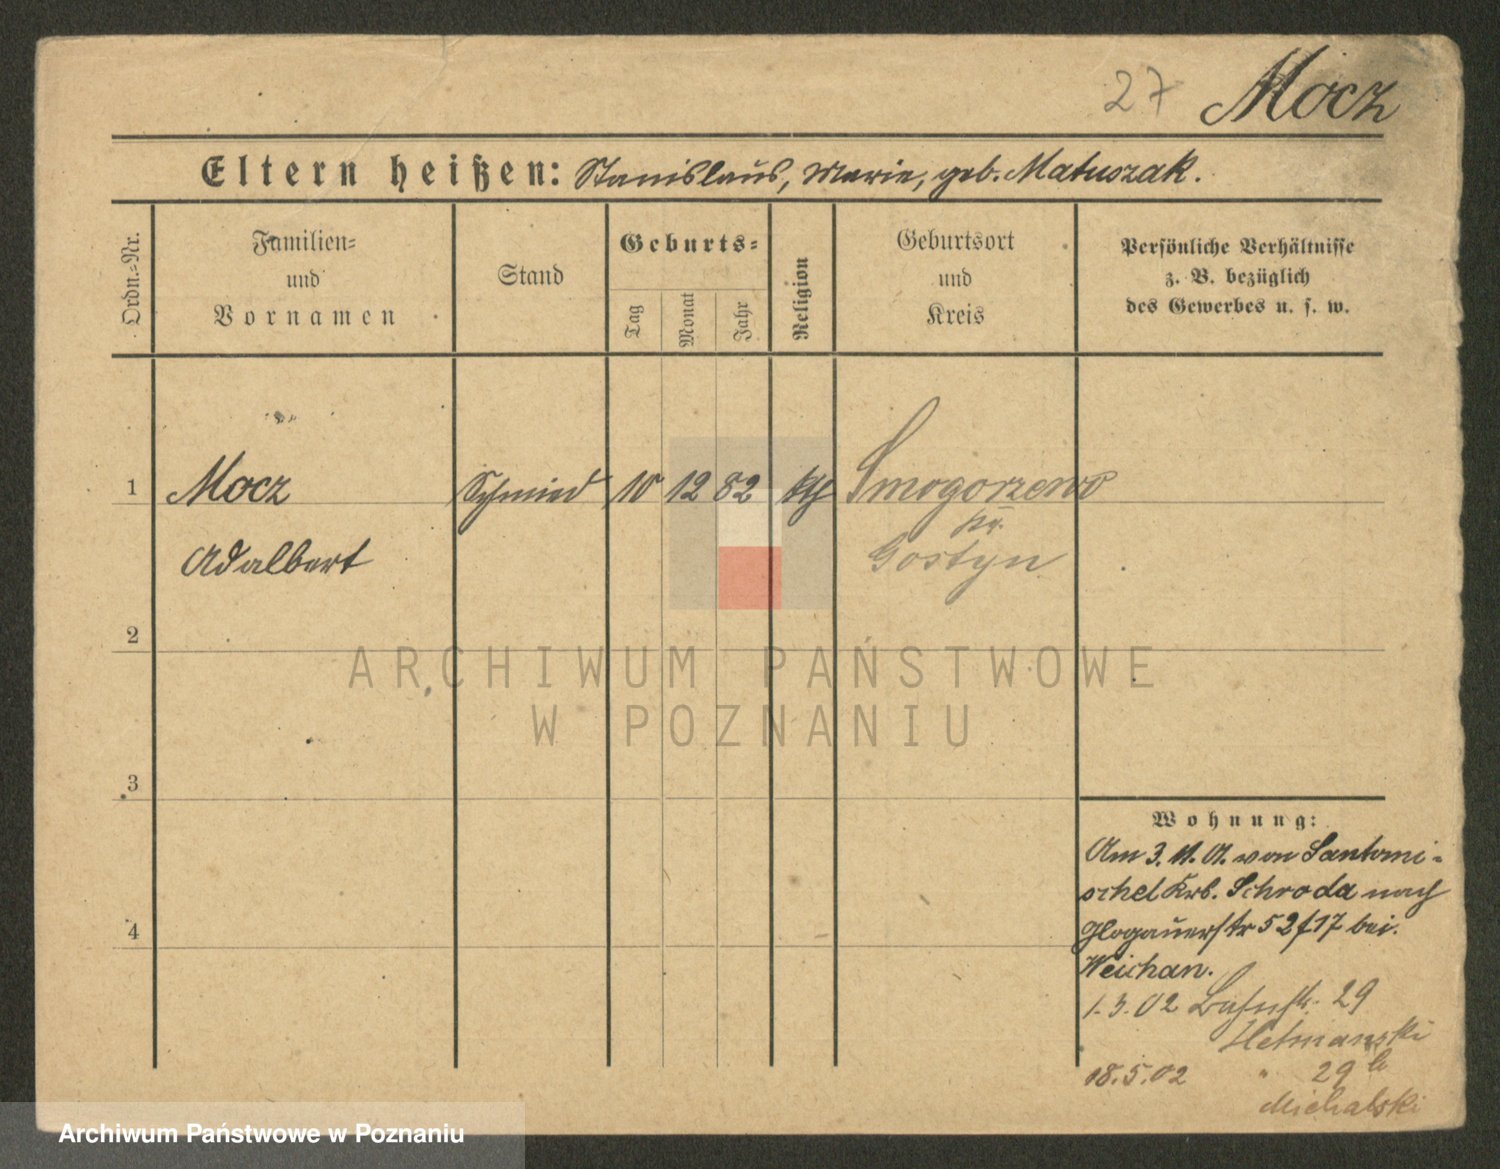 27 Mocz
Eltern heißen: Stanislaus, Marie, geb. Matuszak.
Ordn.=Nr.
Familien=
und
Vornamen
Stand
Geburts=
Tag
Monat
Jahr
Religion
Geburtsort
und
Kreis
Persönliche Verhältnisse
z. B. bezüglich
des Gewerbes u. s. w.
1 Mocz Schmied 10 12 82 kth Smogorzewo
Kr.
Adalbert Gostyn
2
ARCHIWUM PAŃSTWOWE
W POZNANIU
3
Wohnung:
Am 3. 11. 01. von Santomi-
schel Krb. Schroda nach
Glogauerstr 52 f 17 bei
Weichan.
1.3.02 Bahnstr. 29
Hetmanski
18.5.02 " 29 b
Michalski
4
Archiwum Państwowe w Poznaniu